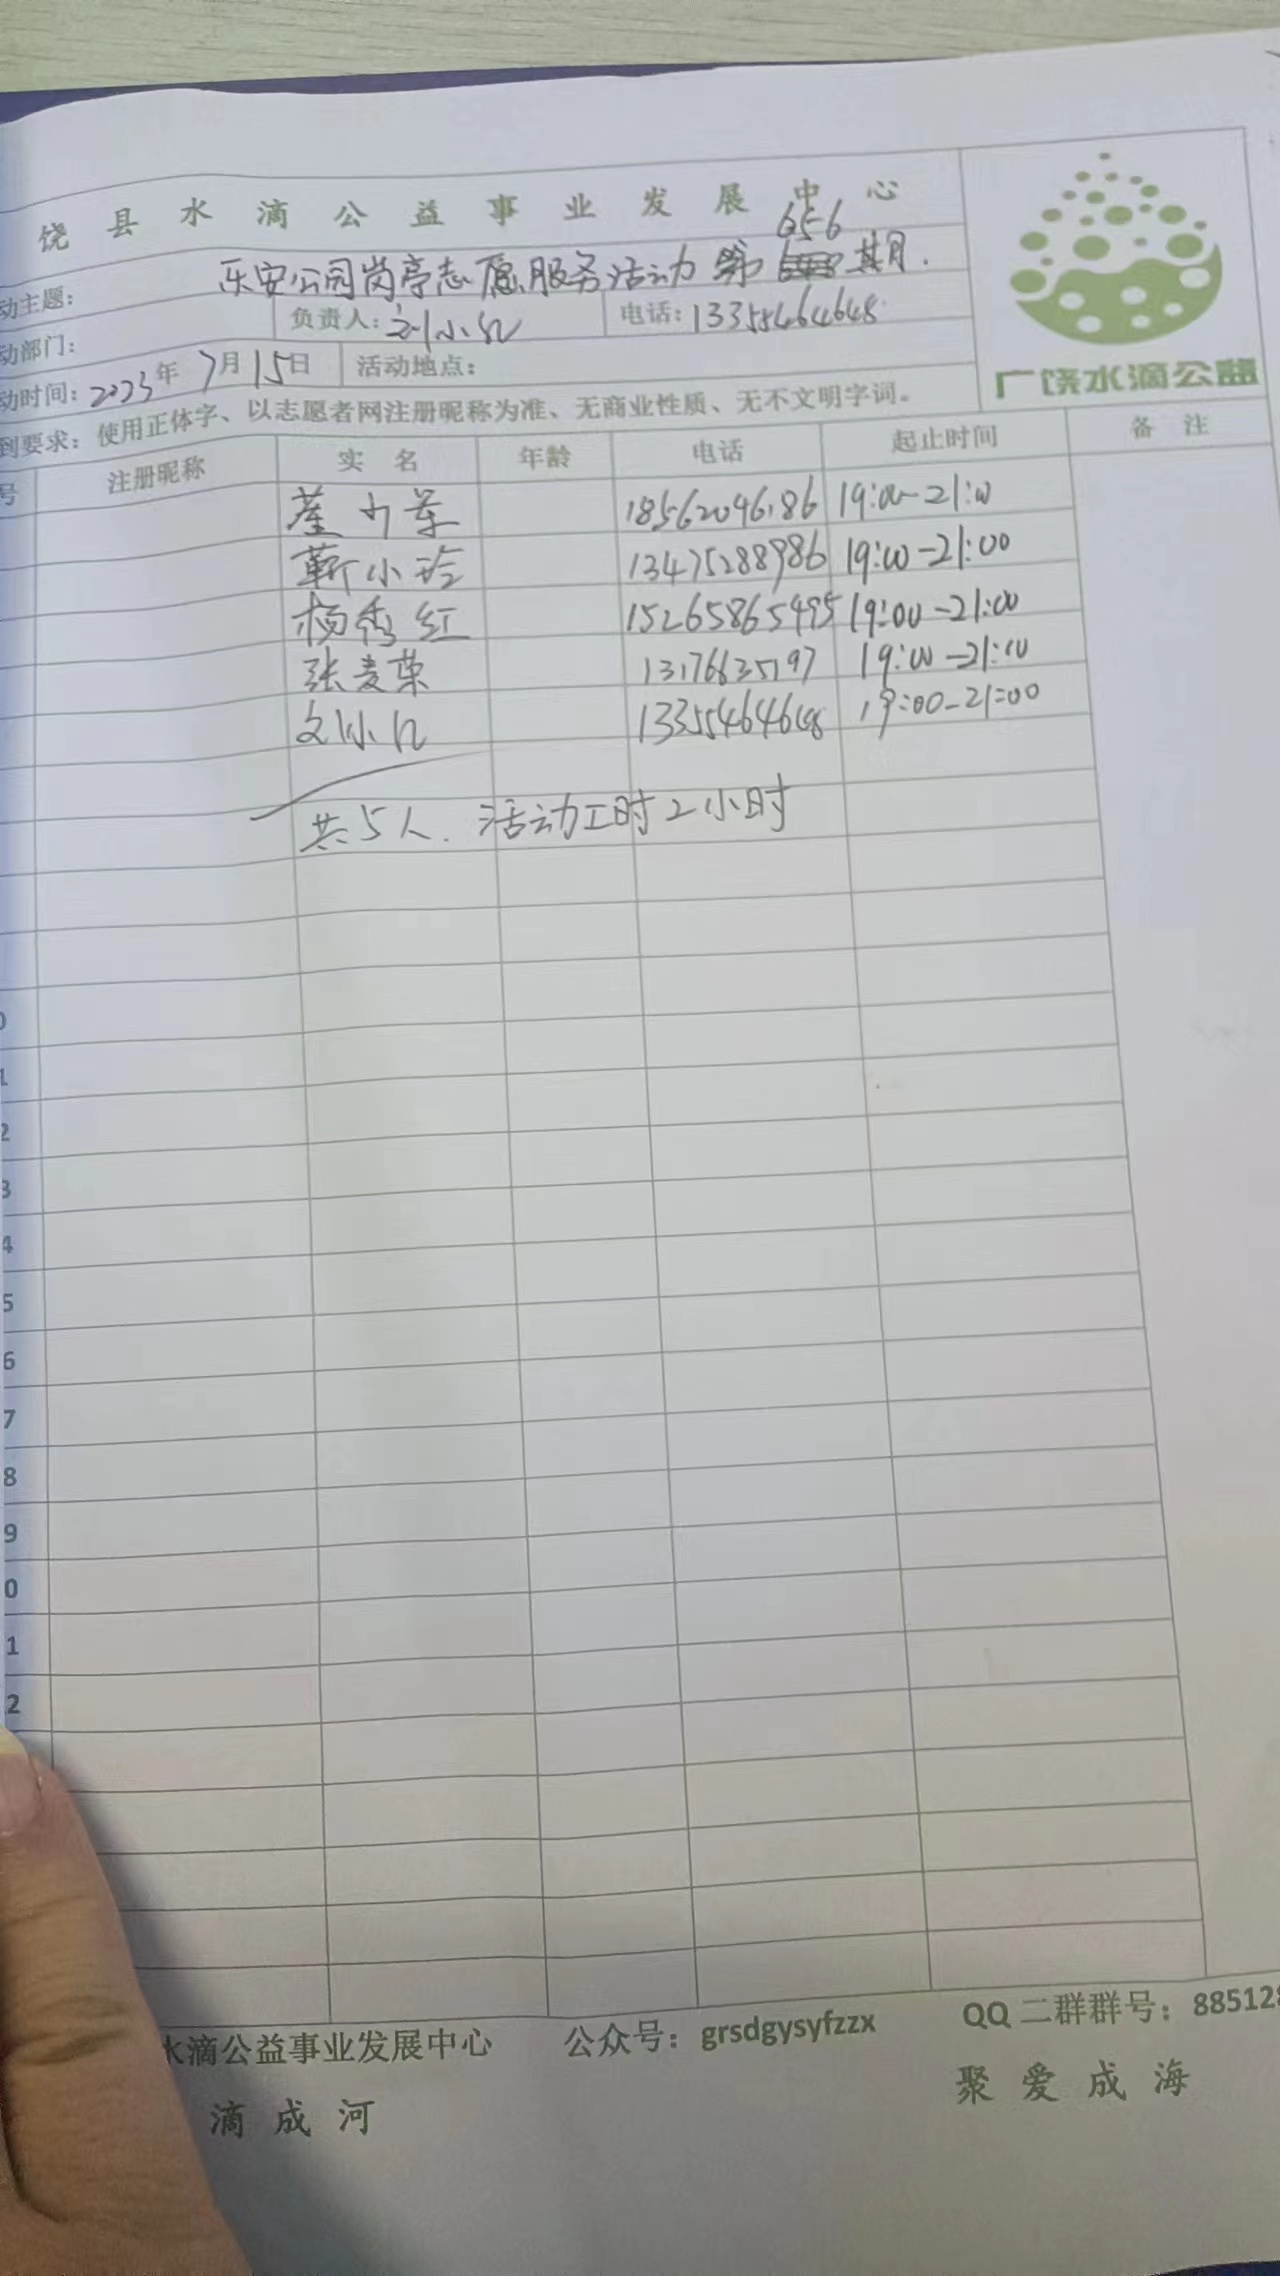 饶县水滴公益事业发展中心
656
动主题: 乐安公园岗亭志愿服务活动 第 期.
动部门: 负责人: 刘小红 电话: 13355464648
动时间: 2023年7月15日 活动地点:
到要求: 使用正体字、以志愿者网注册昵称为准、无商业性质、无不文明字词。
广饶水滴公益
号 注册昵称 实名 年龄 电话 起止时间 备注
18562046186 19:00-21:00
靳小玲 13475288986 19:00-21:00
杨秀红 15265865495 19:00-21:00
张麦荣 13176635197 19:00-21:00
刘小红 13355464648 19:00-21:00
共5人. 活动工时2小时
0
1
2
3
4
5
6
7
8
9
0
1
2
水滴公益事业发展中心 公众号: grsdgysyfzzx QQ二群群号: 885128
滴成河 聚爱成海